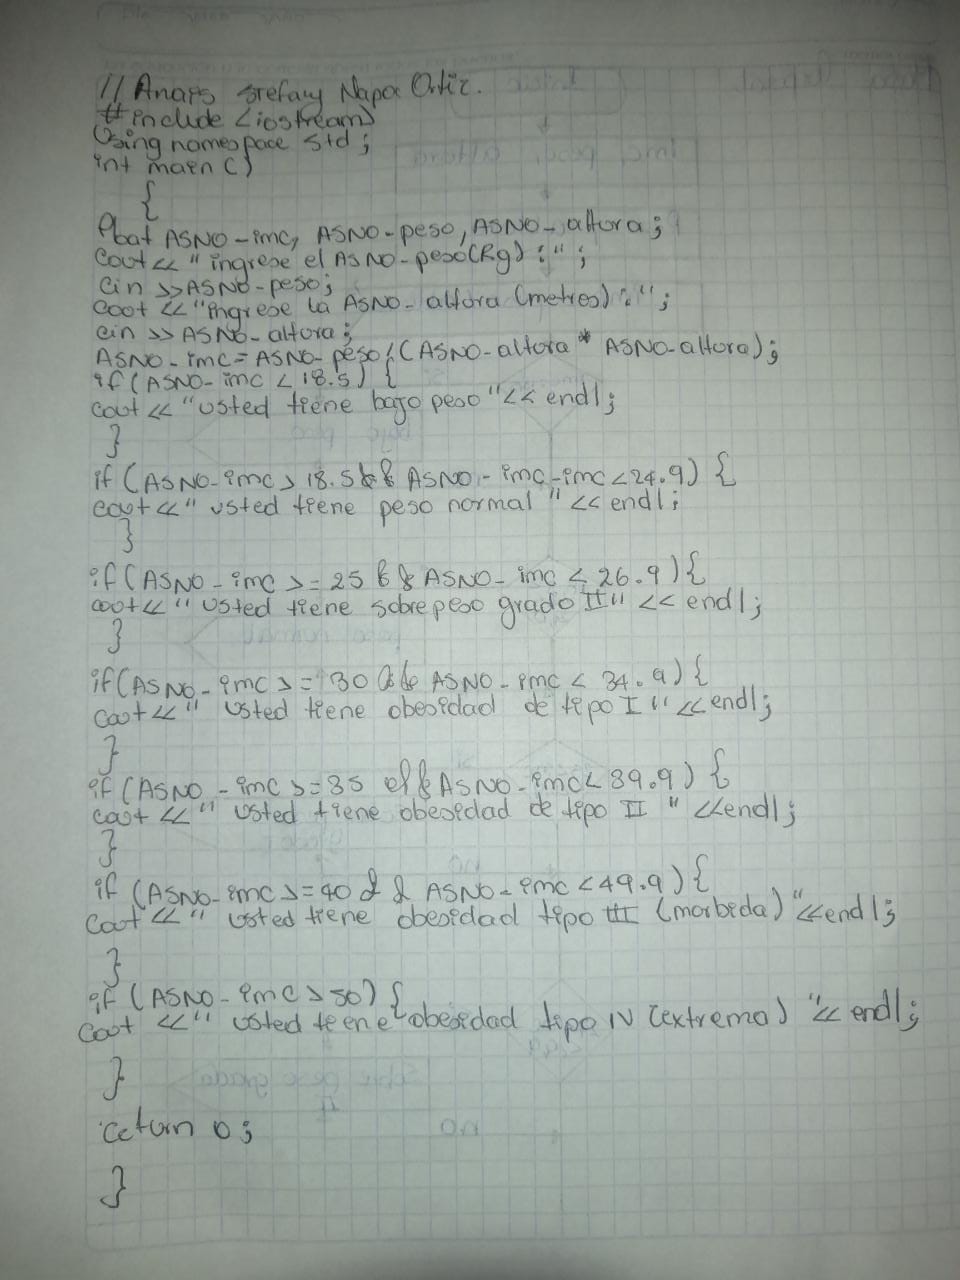 // Anaps Stefany Napa Ortiz.
#include <iostream>
Using namespace std;
int main ()
{
float ASNO-imc, ASNO-peso, ASNO-altura;
Cout << "ingrese el ASNO-peso(Kg) :";
Cin >> ASNO-peso;
Cout << "ingrese la ASNO-altura (metros) :";
cin >> ASNO-altura;
ASNO-imc = ASNO-peso/(ASNO-altura * ASNO-altura);
if (ASNO-imc < 18.5) {
cout << "usted tiene bajo peso" << endl;
}
if (ASNO-imc > 18.5 && ASNO-imc-imc < 24.9) {
cout << " usted tiene peso normal " << endl;
}
if (ASNO-imc >= 25 && ASNO-imc < 26.9) {
cout << " usted tiene sobrepeso grado II" << endl;
}
if (ASNO-imc >= 30 && ASNO-imc < 34.9) {
cout << " usted tiene obesidad de tipo I" << endl;
}
if (ASNO-imc >= 35 && ASNO-imc < 39.9) {
cout << " usted tiene obesidad de tipo II " << endl;
}
if (ASNO-imc >= 40 && ASNO-imc < 49.9) {
Cout << " usted tiene obesidad tipo III (morbida) " << endl;
}
if (ASNO-imc > 50) {
Cout << " usted teene obesidad tipo IV (extrema) " << endl;
}
return 0;
}